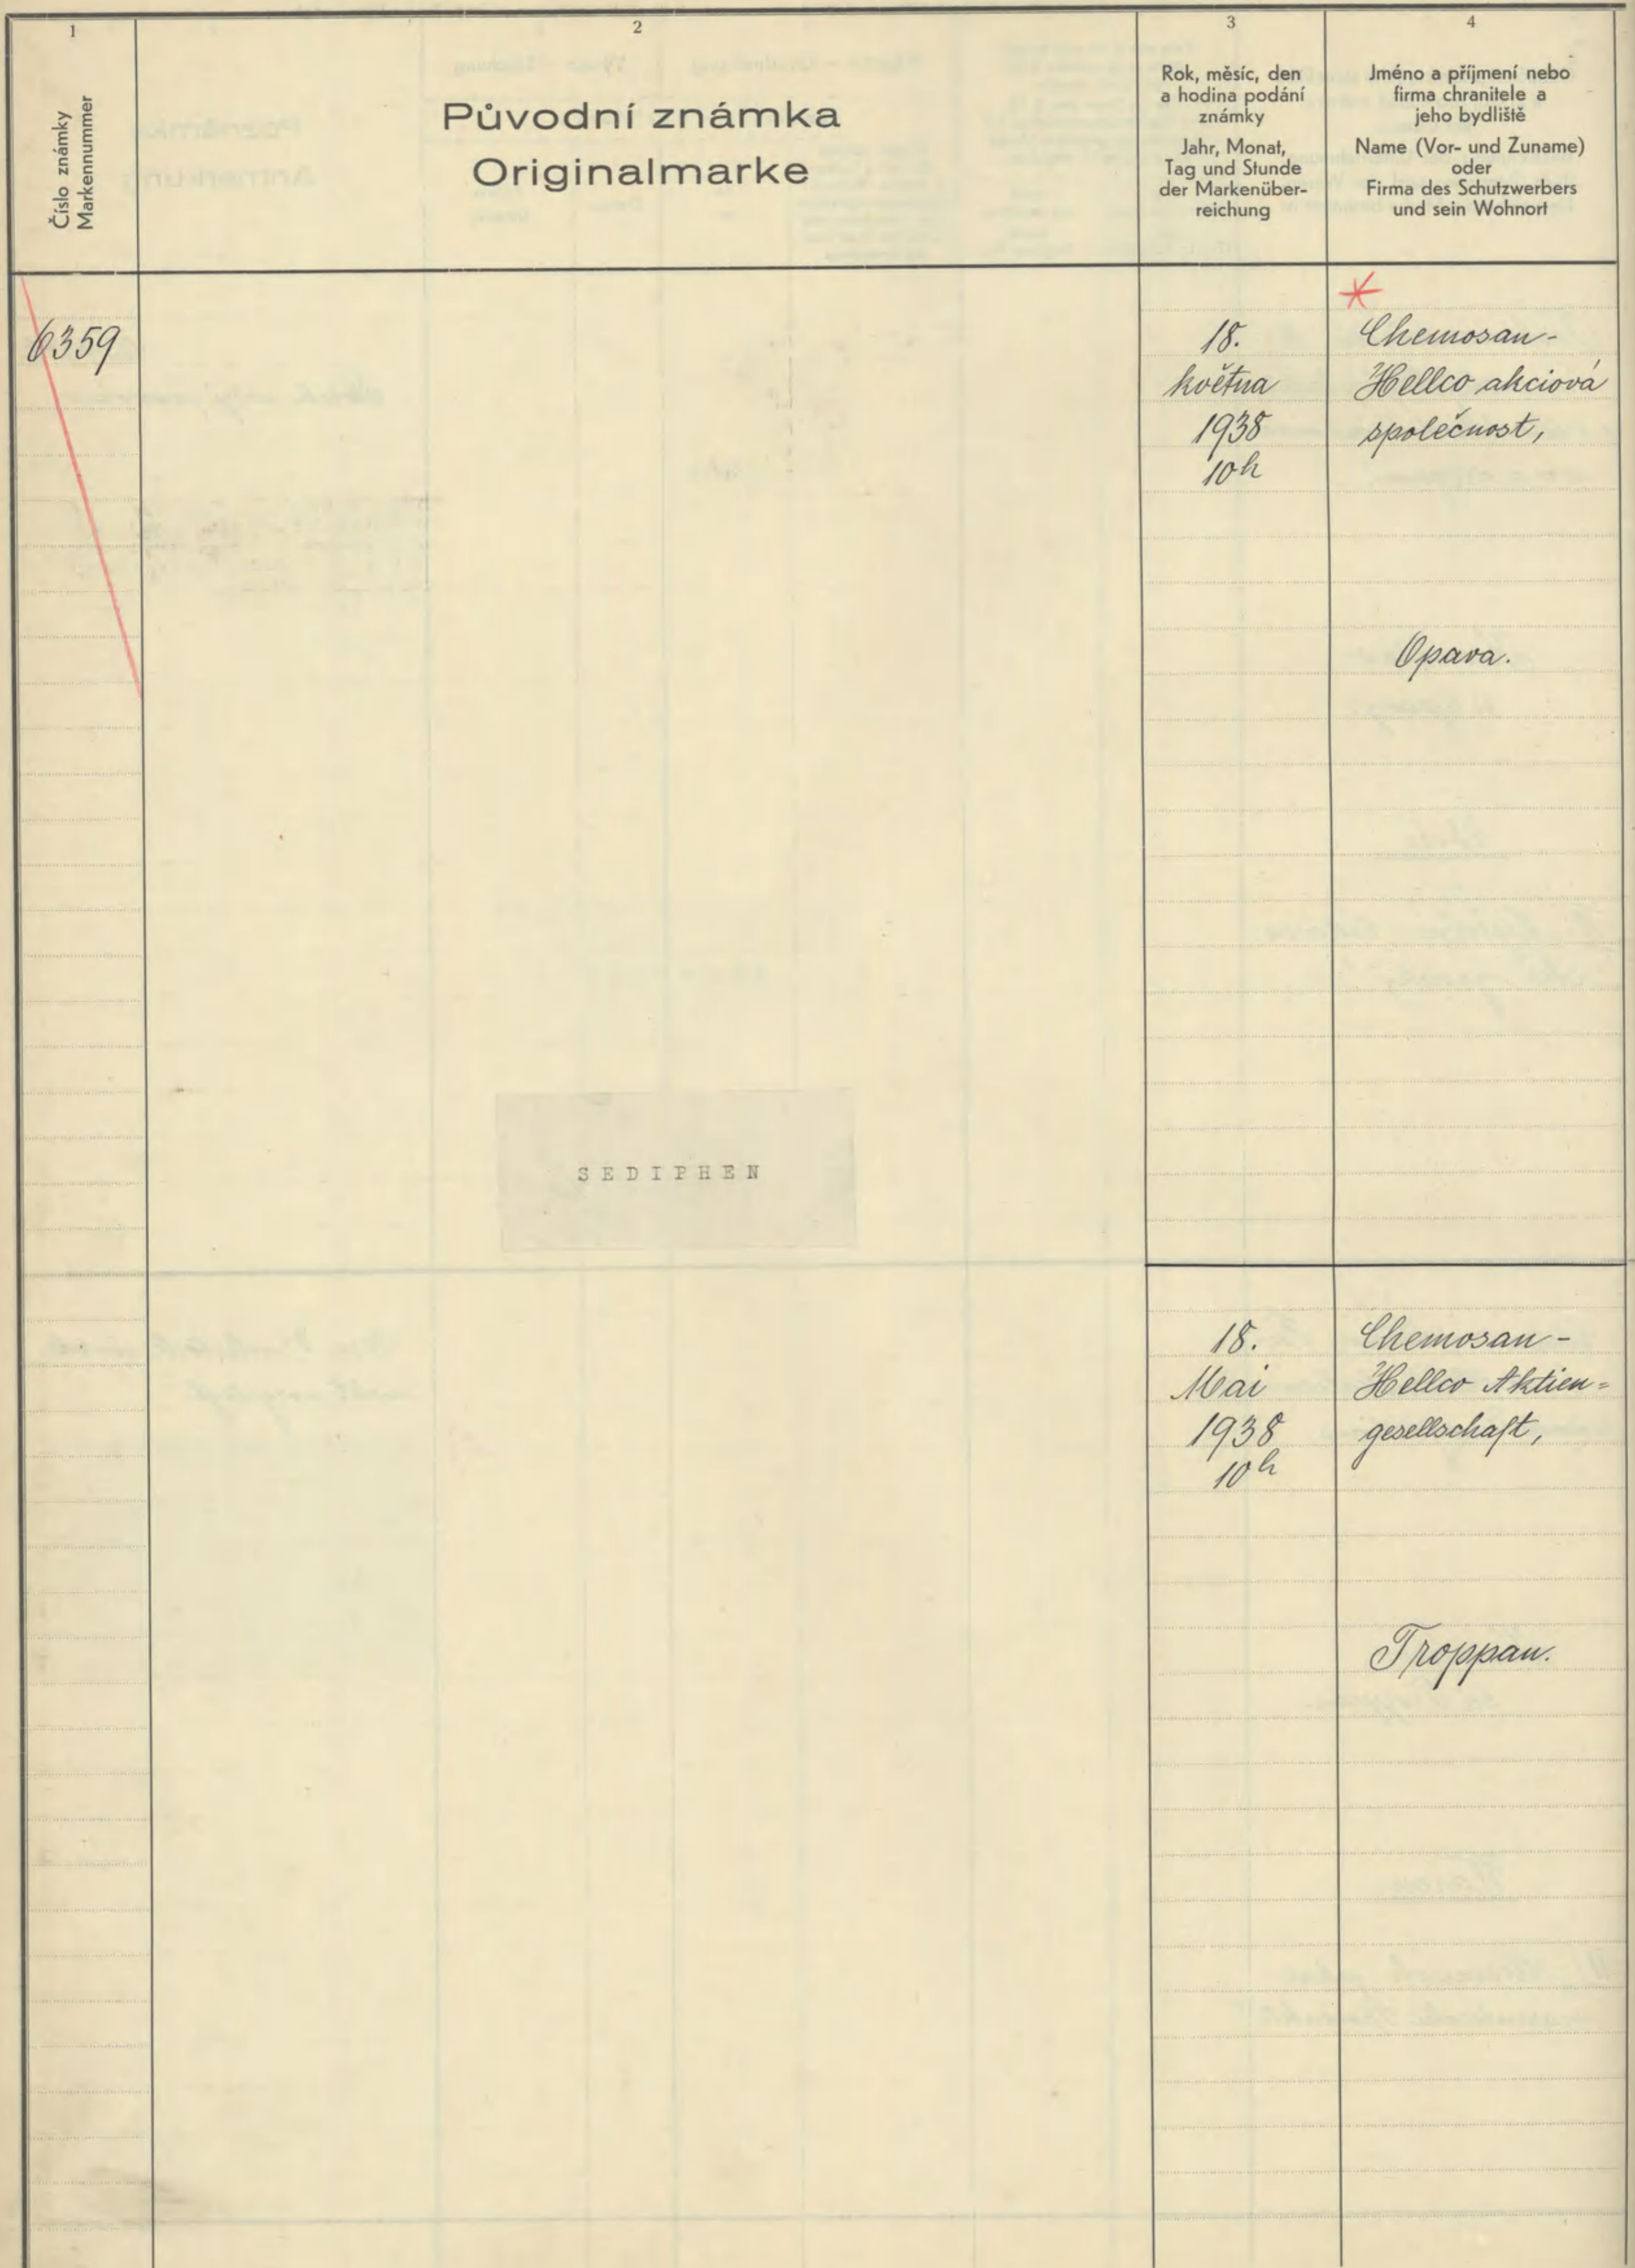 1
2
3
4
Číslo známky
Markennummer
Původní známka
Originalmarke
Rok, měsíc, den
a hodina podání
známky
Jahr, Monat,
Tag und Stunde
der Markenüber-
reichung
Jméno a příjmení nebo
firma chranitele a
jeho bydliště
Name (Vor- und Zuname)
oder
Firma des Schutzwerbers
und sein Wohnort
6359
18.
května
1938
10h
Chemosan-
Hellco akciová
společnost,
Opava.
SEDIPHEN
18.
Mai
1938
10h
Chemosan-
Hellco Aktien=
gesellschaft,
Troppau.